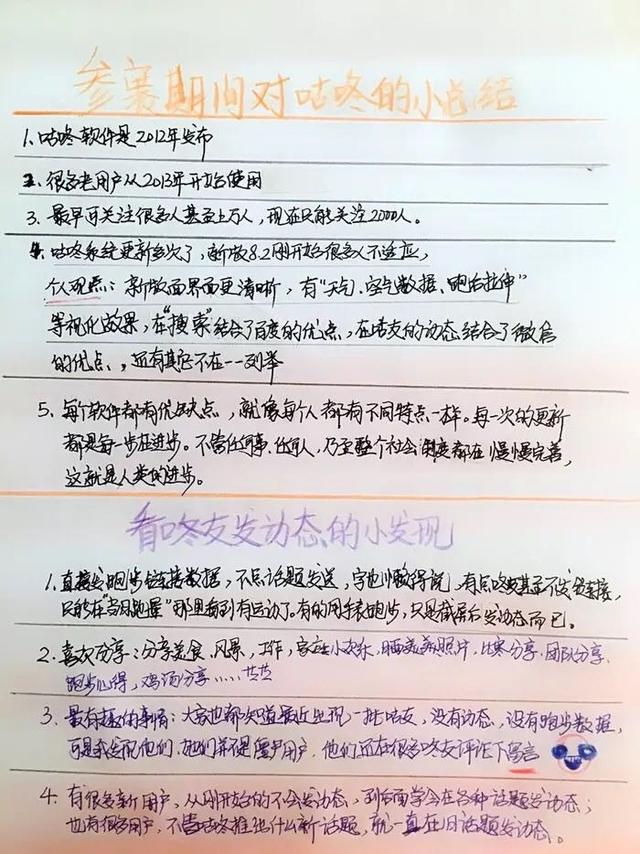 参赛期间对咕咚的小总结
1、咕咚软件是2012年发布
2、很多老用户从2013年开始使用
3、最早可关注很多人甚至上万人，现在只能关注2000人。
4、咕咚系统更新多次了，新版8.2刚开始很多人不适应，
个人观点：新版面界面更清晰，有“天气、空气数据、跑后拉伸”
等视化效果，在“搜索”结合了百度的优点，在咕友的动态结合了微信
的优点、，还有其它不在一一列举
5、每个软件都有优缺点，就像每个人都有不同特点一样。每一次的更新
都是每一步在进步。不管任何事，任何人，乃至整个社会制度都在慢慢完善，
这就是人类的进步。
看咚友发动态的小发现
1、直接发跑步链接数据，不点话题发送，字也懒得说，有点咚友甚至不发链接，
只能在“当日跑量”那里看到有运动了。有的用手表跑步，只是截屏后发动态而已。
2、喜欢分享：分享美食、风景，工作，家庭小欢乐，晒美美照片，比赛分享，团队分享，
跑步心得，鸡汤分享……
3、最有趣的事情：大家也都知道最近出现一批咕友，没有动态，没有跑步数据，
可是我发现他们，她们并不是僵尸用户，他们还在很多咚友评论下留言
4、有很多新用户，从刚开始的不会发动态，到后面学会在各种话题发动态；
也有很多用户，不管咕咚推出什么新话题，就一直在旧话题发动态。